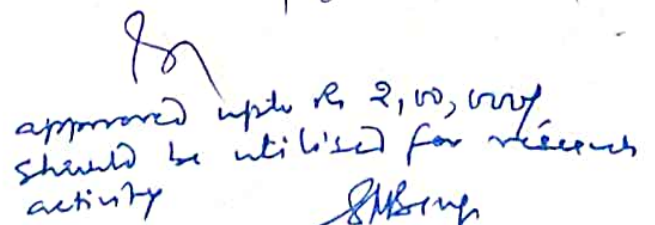 approved upto Rs 2,00,000/
should be utilised for research
activity